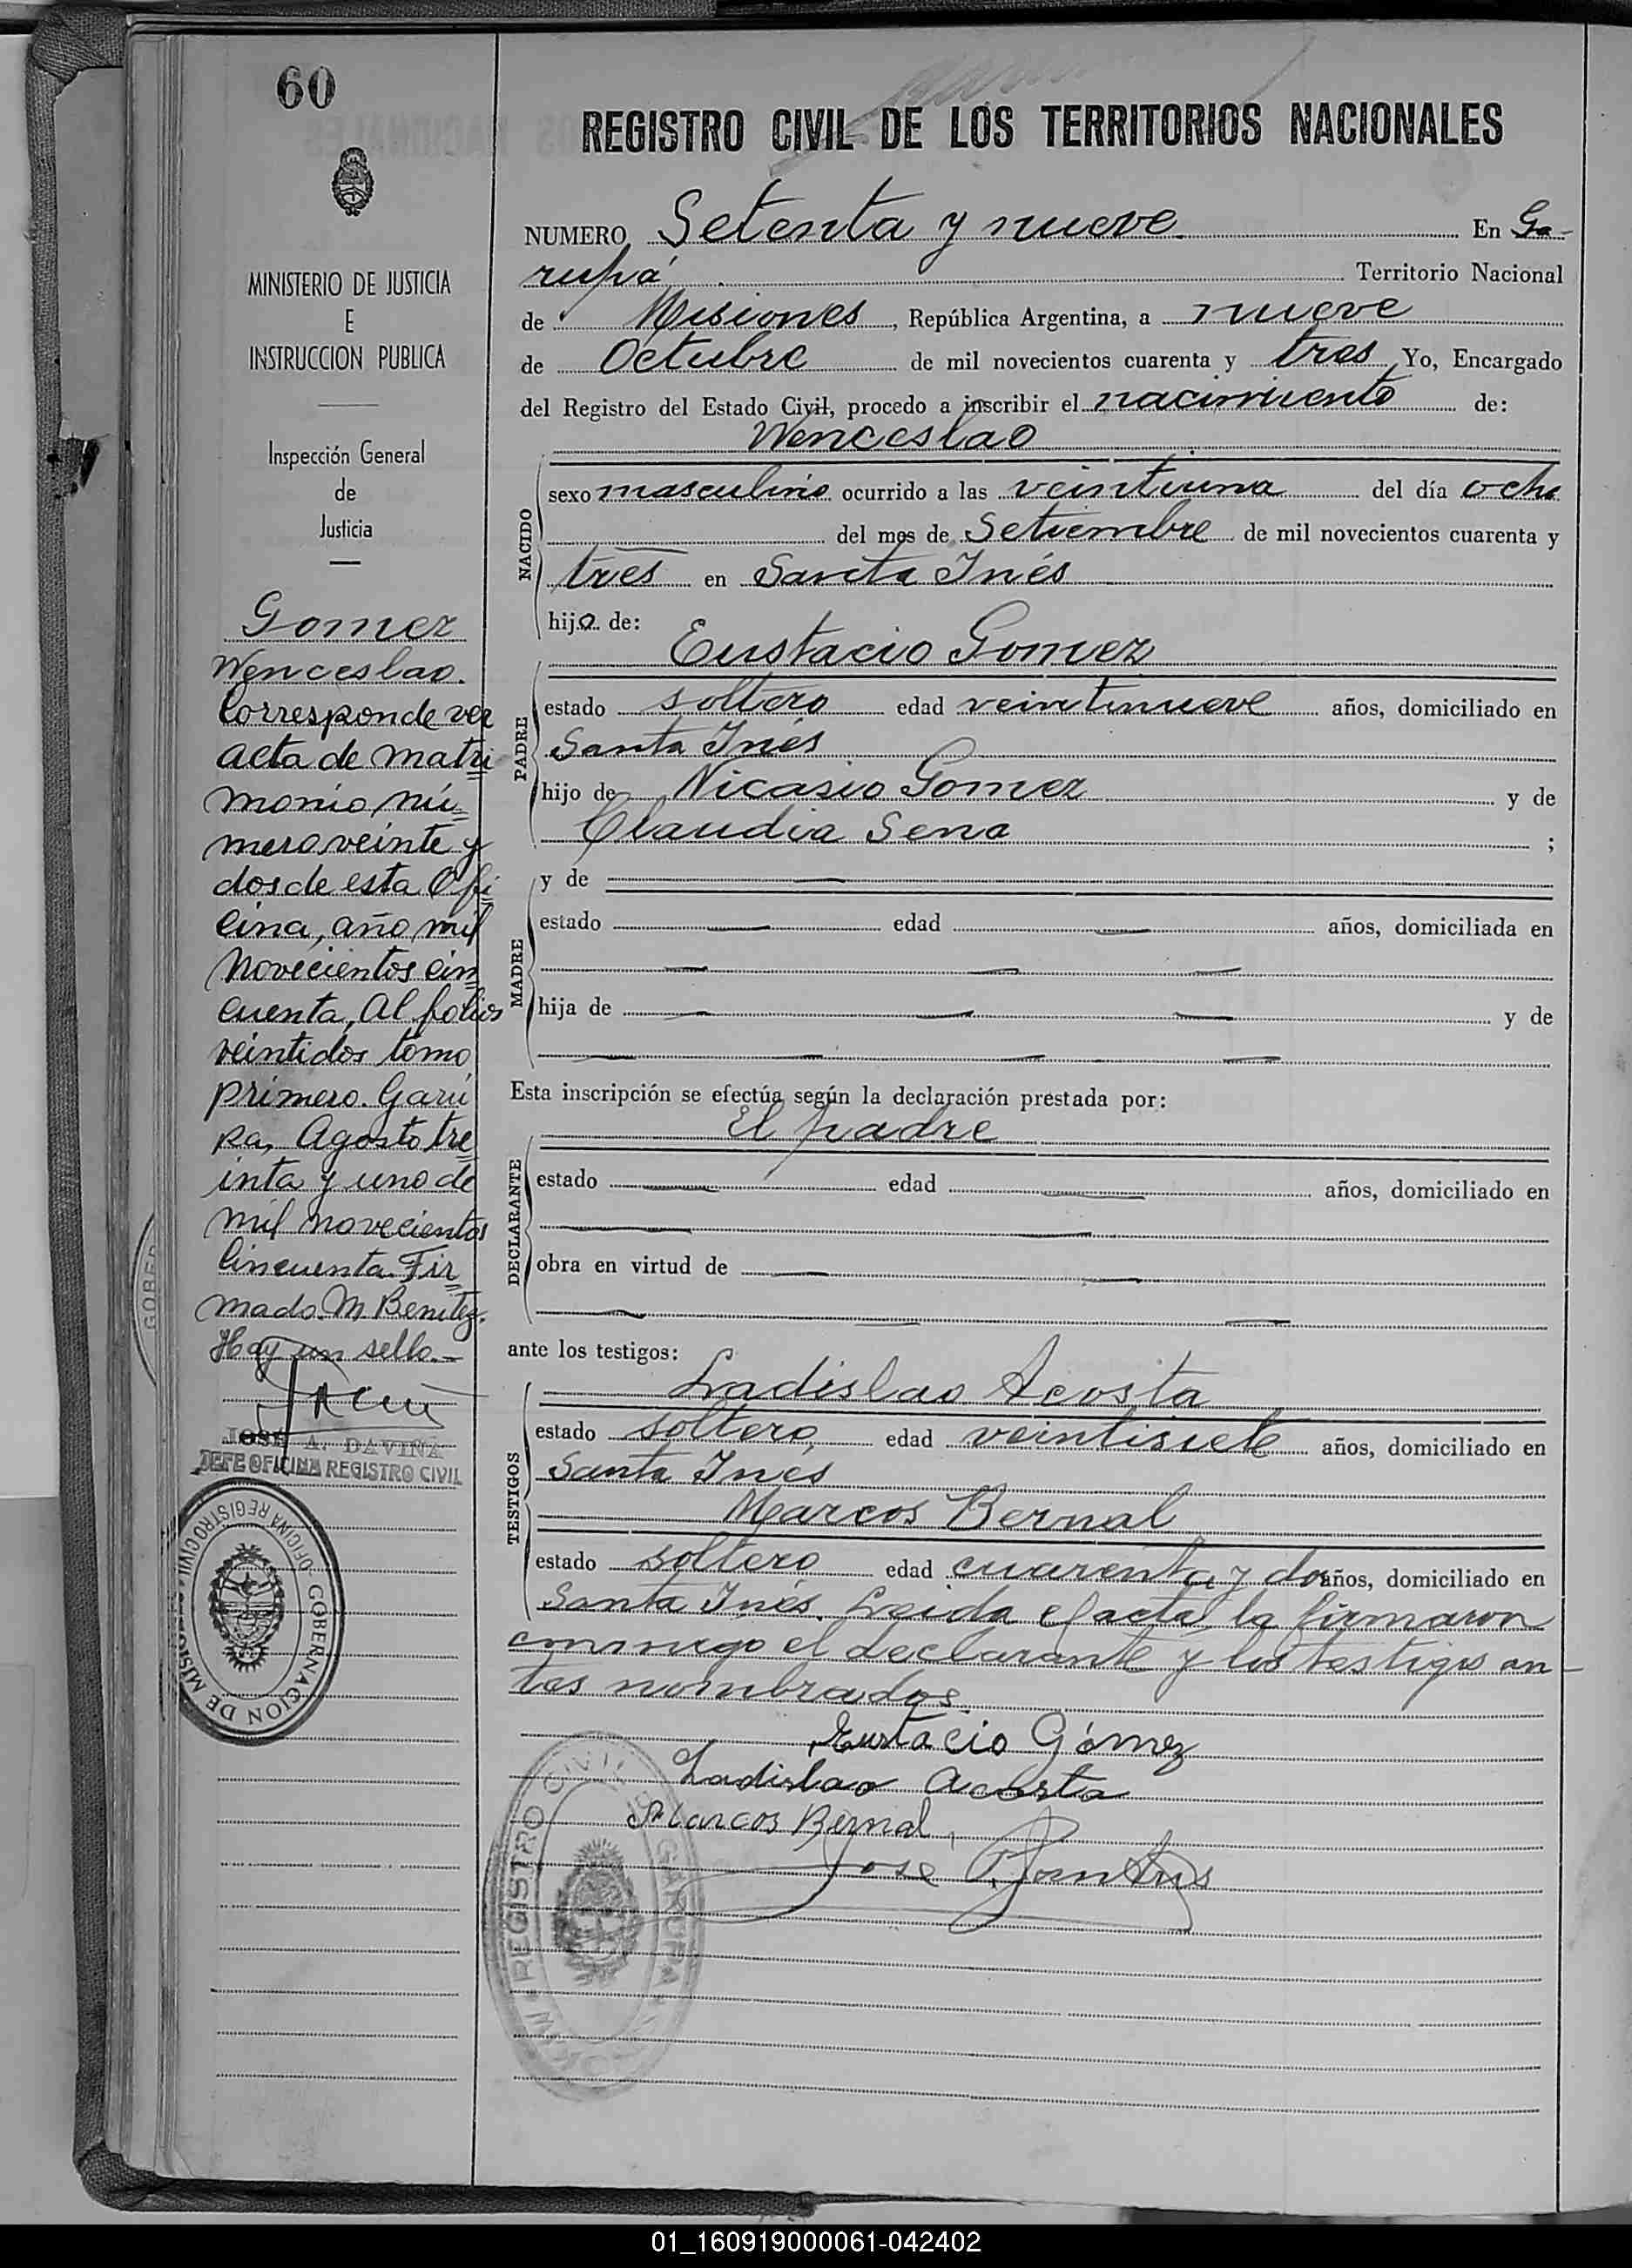 60
MINISTERIO DE JUSTICIA
E
INSTRUCCION PUBLICA
Inspección General
de
Justicia
Gomez
Wenceslao.
Corresponde ver
acta de matri
monio nú
mero veinte y
dos de esta Ofi
cina, año mil
novecientos cin
cuenta, Al folios
veintidos tomo
primero. Garu
pa, Agosto tre
inta y uno de
mil novecientos
cincuenta. Fir
mado. M Benitez.
Hay un sello.—
JOSE A. DAVIÑA
JEFE OFICINA REGISTRO CIVIL
OFICINA REGISTRO CIVIL
GOBERNACION DE MISIONES
REGISTRO CIVIL DE LOS TERRITORIOS NACIONALES
NUMERO Setenta y nueve En Ga-
rupá Territorio Nacional
de Misiones, República Argentina, a nueve
de Octubre de mil novecientos cuarenta y tres Yo, Encargado
del Registro del Estado Civil, procedo a inscribir el nacimiento de:
Wenceslao
NACIDO
sexo masculino ocurrido a las veintiuna del día ocho
del mes de Setiembre de mil novecientos cuarenta y
tres en Santa Inés
hijo de:
Eustacio Gomez
PADRE
estado soltero edad veintinueve años, domiciliado en
Santa Inés
hijo de Nicasio Gomez y de
Claudia Sena ;
y de
MADRE
estado edad años, domiciliada en
hija de y de
Esta inscripción se efectúa según la declaración prestada por:
El padre
DECLARANTE
estado edad años, domiciliado en
obra en virtud de
ante los testigos:
Ladislao Acosta
TESTIGOS
estado soltero edad veintisiete años, domiciliado en
Santa Inés
Marcos Bernal
estado soltero edad cuarenta y dos años, domiciliado en
Santa Inés. Leida el acta la firmaron
conmigo el declarante y los testigos an-
tes nombrados
Eustacio Gómez
Ladislao Acosta
Marcos Bernal
José
REGISTRO CIVIL
GARUPA
01_160919000061-042402